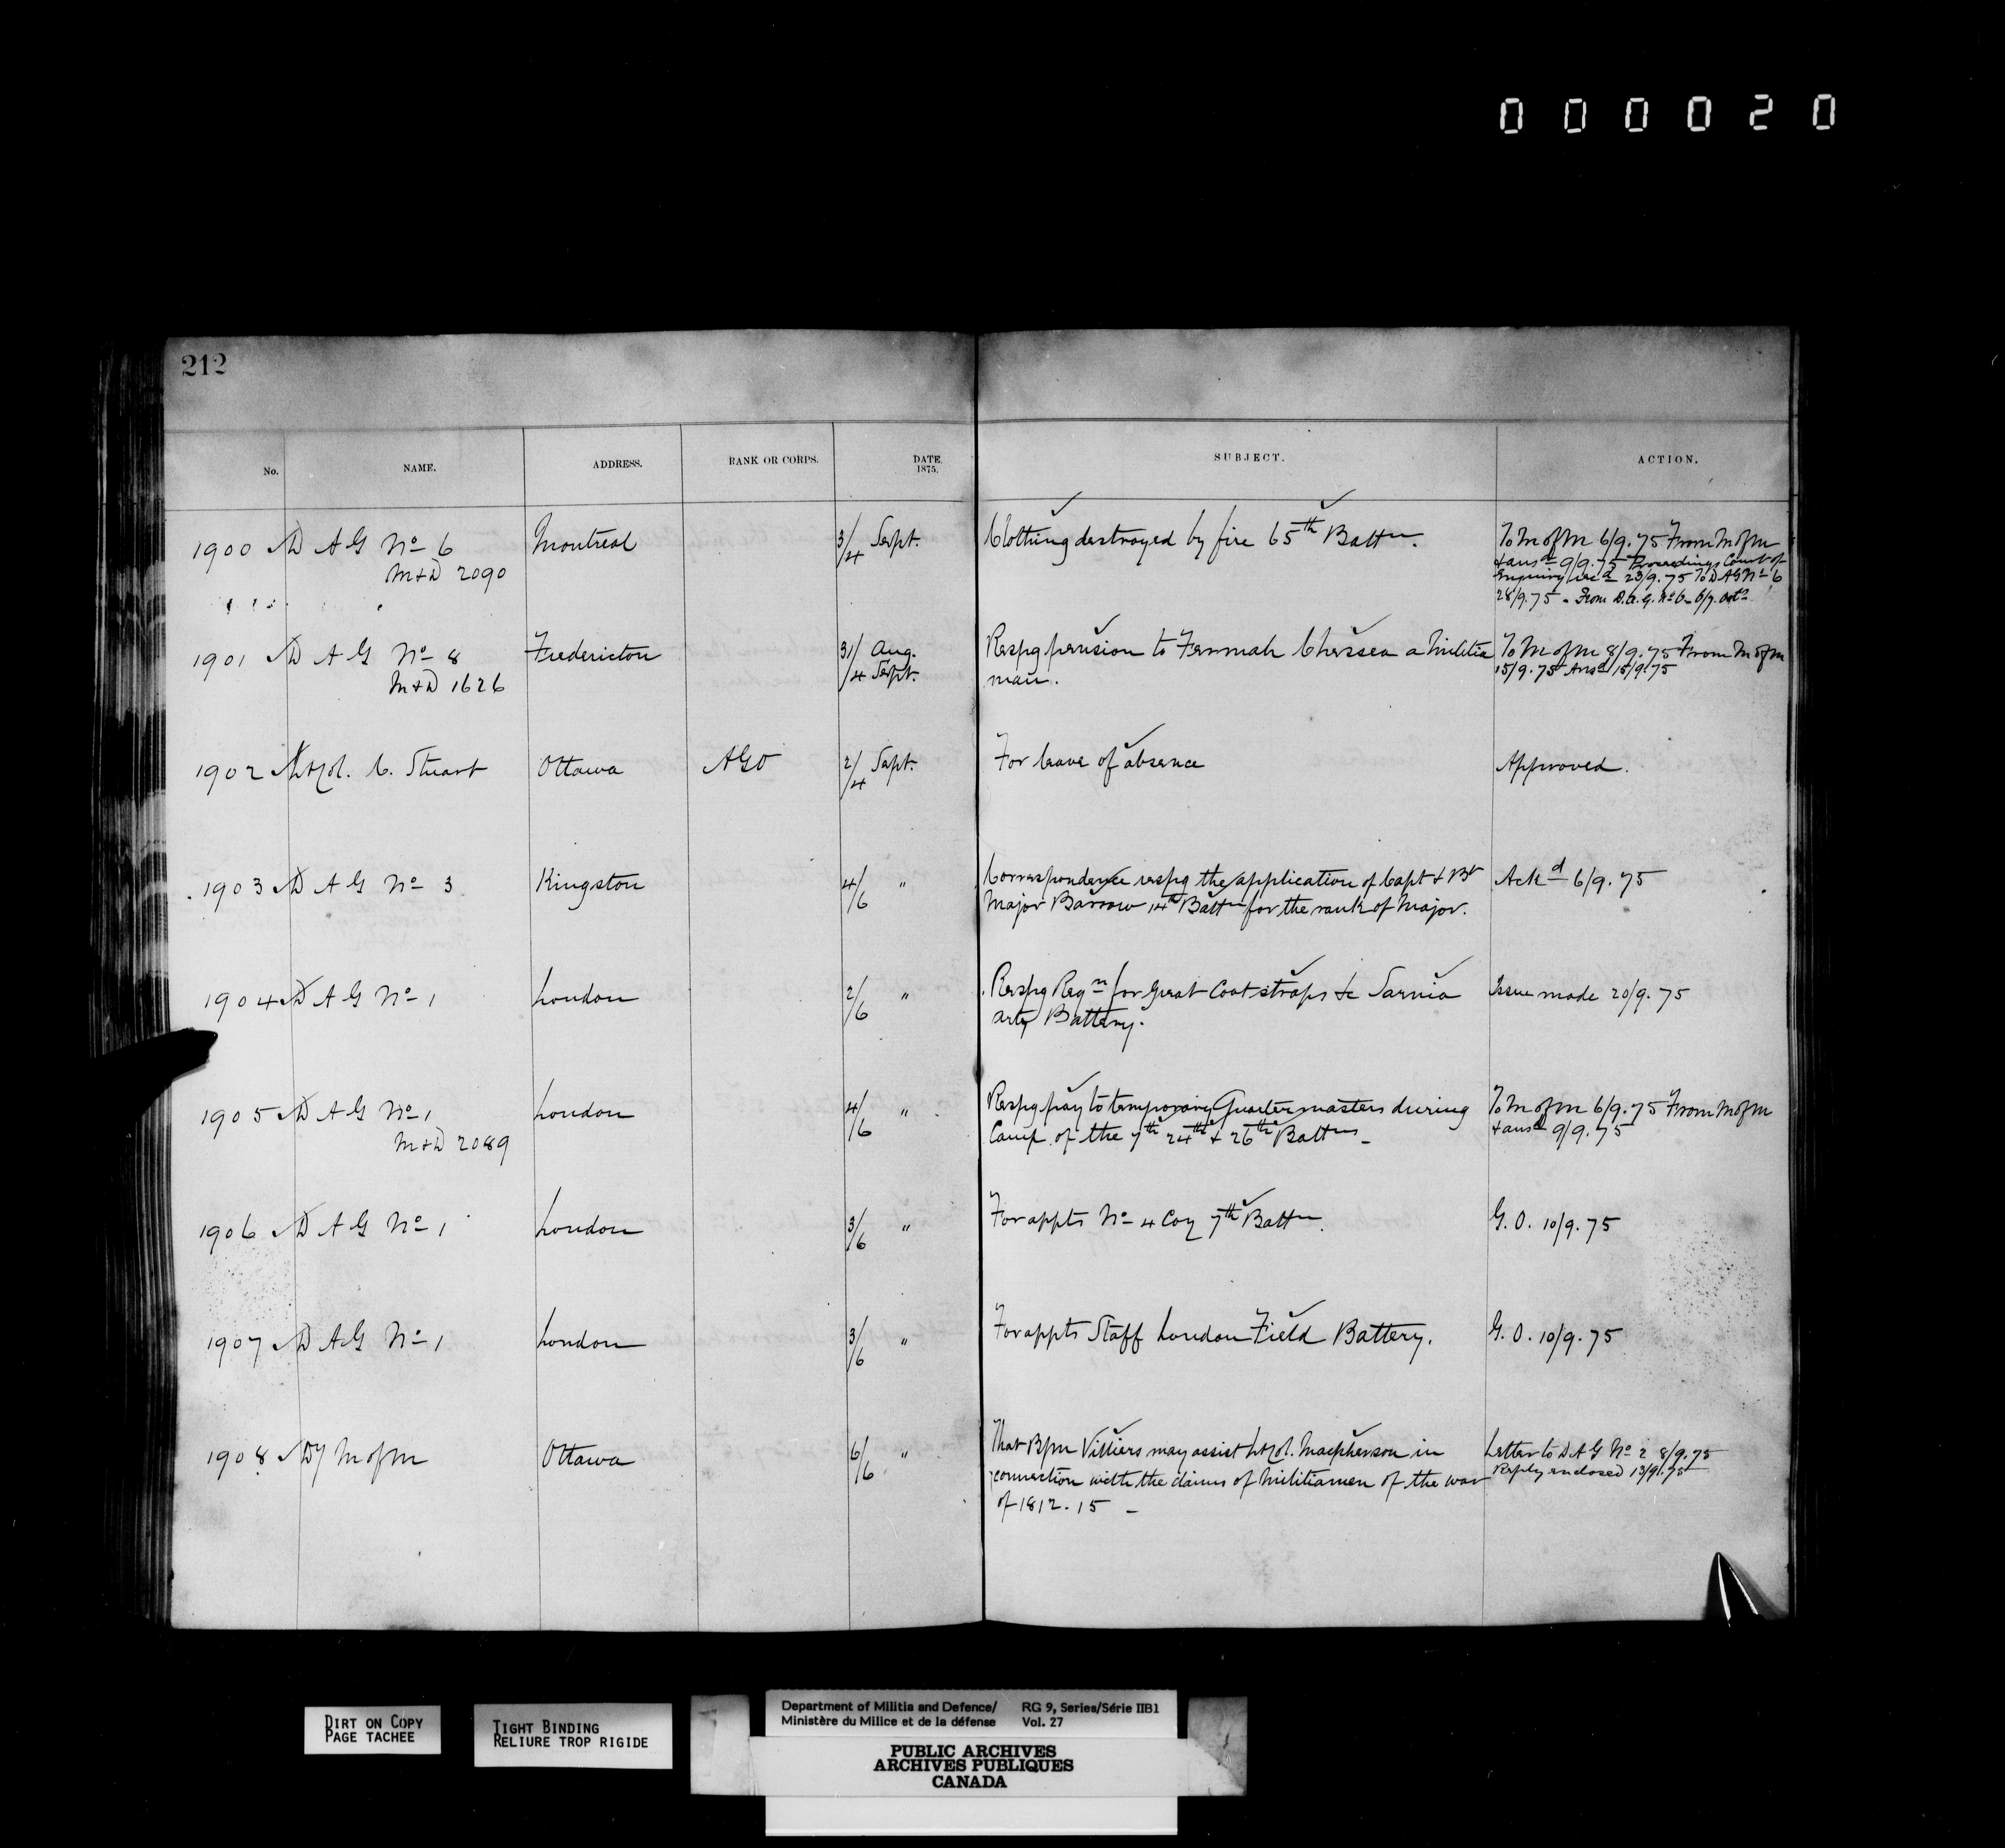 000020
212
No. NAME. ADDRESS. RANK OR CORPS. DATE. 1875. SUBJECT. ACTION.
1900 D A G No 6 Montreal 3/4 Sept. Clothing destroyed by fire 65th Battn. To M of M 6/9.75 From M of M
M & D 2090 & ansd 9/9.75 Proceedings Court of
Enquiry recd 23/9.75 To D A G No 6
28/9.75 - From D.A.G. No 6 - 6/7 Octr
1901 D A G No 8 Fredericton 31/ Aug. Respg pension to a Militia To M of M 8/9.75 From M of M
M & D 1626 /4 Sept. man. 15/9.75 Ansd 15/9.75
1902 Lt Col. C. Stuart Ottawa AGO 2/4 Sept. For leave of absence Approved.
1903 D A G No 3 Kingston 4/6 " Correspondence respg the application of Capt & Bt Ackd 6/9.75
Major Barrow 14th Battn for the rank of Major.
1904 D A G No 1 London 2/6 " Respg Reqn for Great Coat straps &c Sarnia Issue made 20/9.75
Arty Battery.
1905 D A G No 1 London 4/6 " Respg pay to temporary Quarter masters during To M of M 6/9.75 From M of M
M & D 2089 Camp of the 7th 24th & 26th Battns - & ansd 9/9.75
1906 D A G No 1 London 3/6 " For appts No 4 Coy 7th Battn. G.O. 10/9.75
1907 D A G No 1 London 3/6 " For appts Staff London Field Battery. G.O. 10/9.75
1908 Dy M of M Ottawa 6/6 " That Villiers may assist Lt Col. Macpherson in Letter to D A G No 2 8/9.75
connection with the claims of Militiamen of the war Reply enclosed 13/9.75
of 1812.15 -
DIRT ON COPY
PAGE TACHEE
TIGHT BINDING
RELIURE TROP RIGIDE
Department of Militia and Defence/ RG 9, Series/Série IIB1
Ministère du Milice et de la défense Vol. 27
PUBLIC ARCHIVES
ARCHIVES PUBLIQUES
CANADA